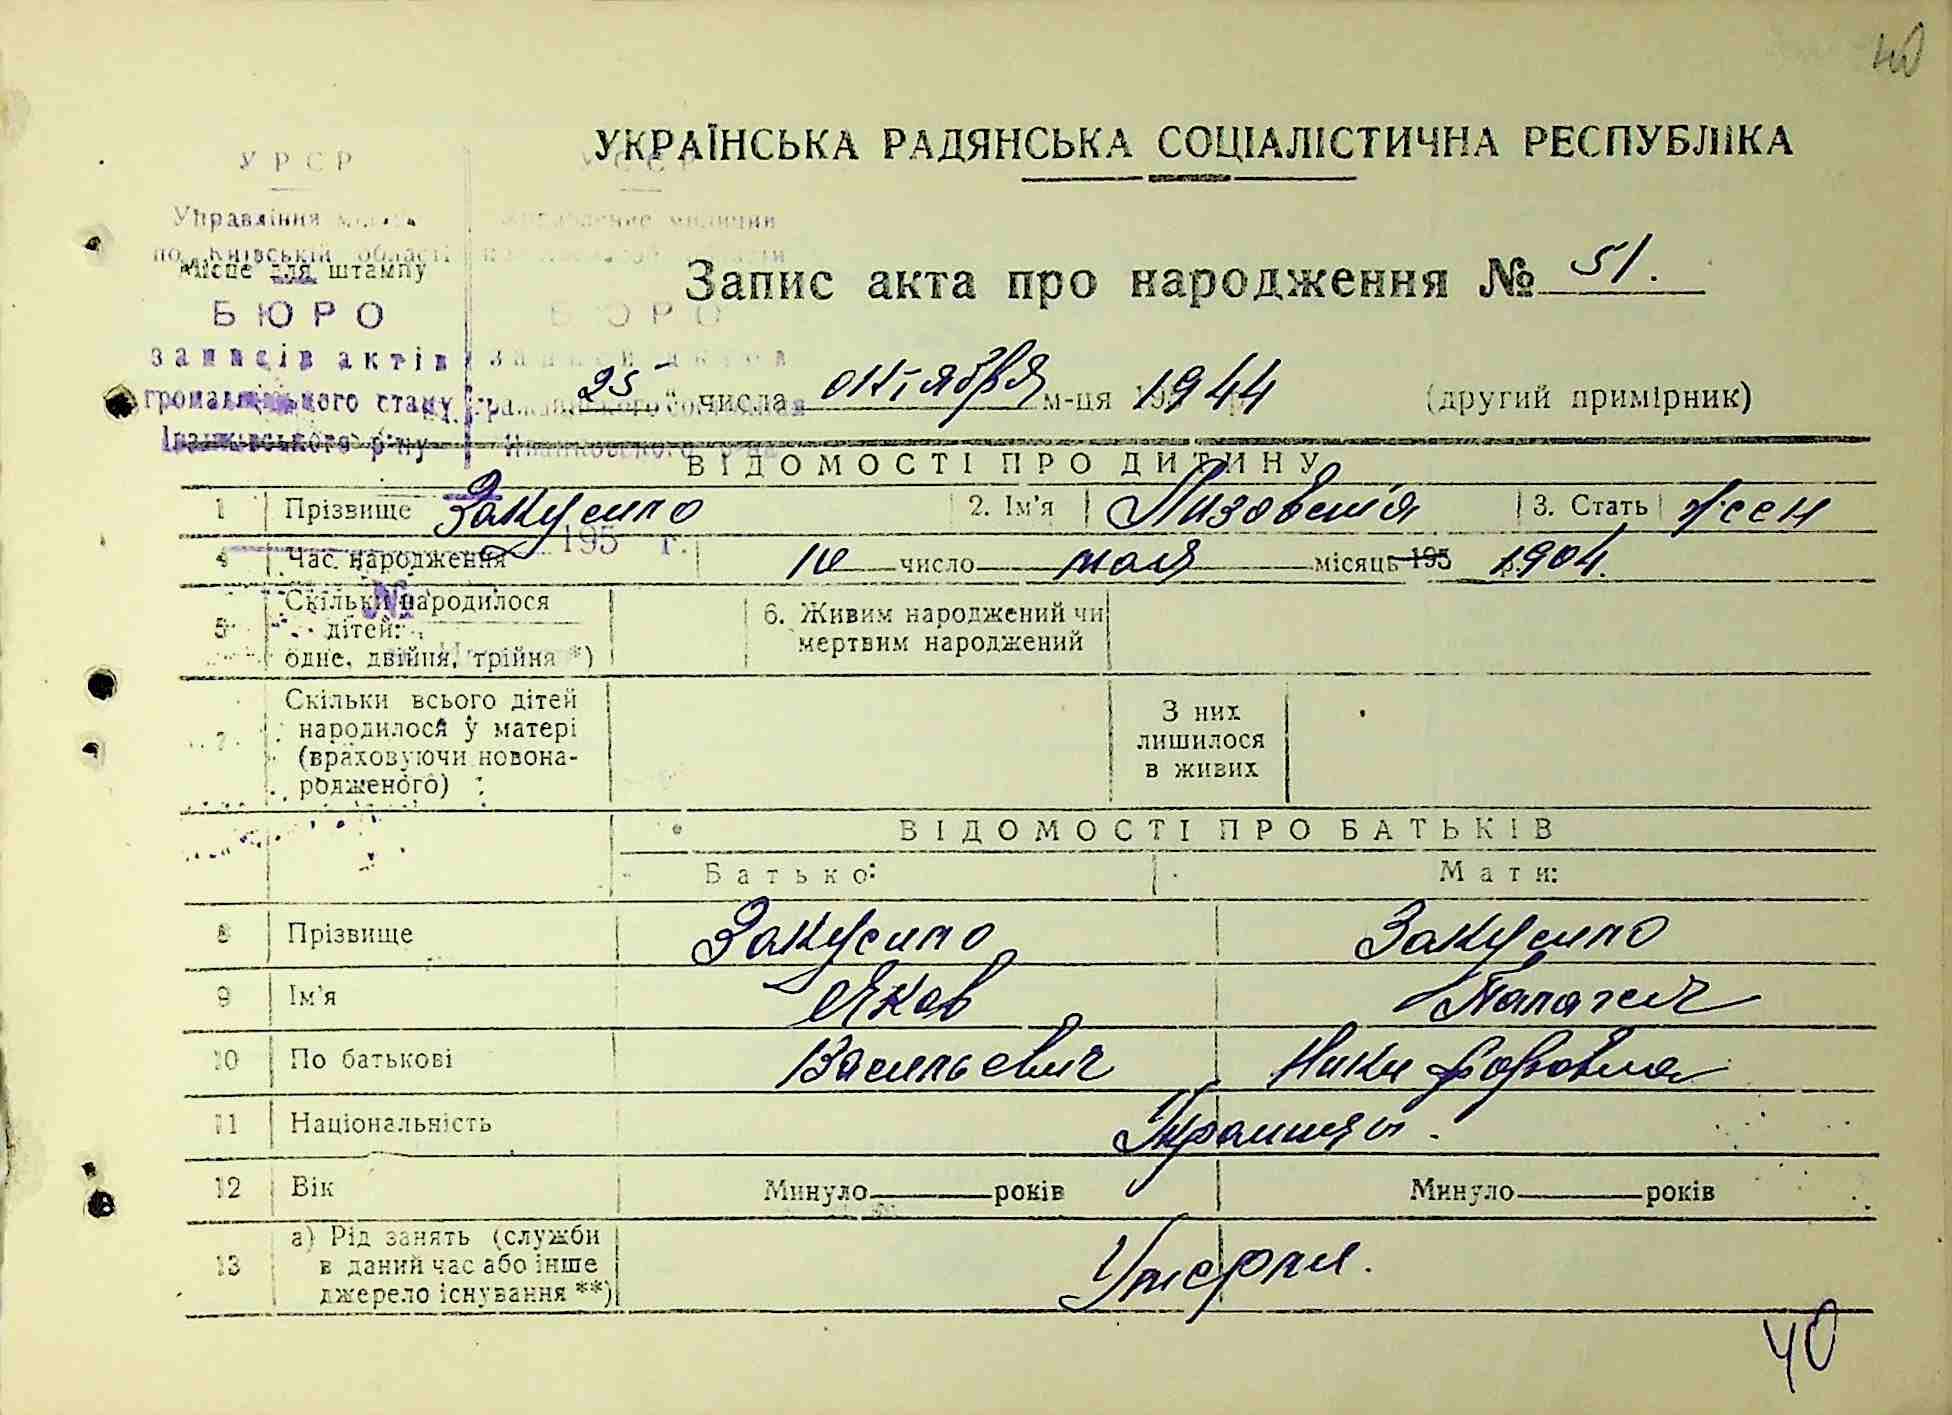 40
УКРАЇНСЬКА РАДЯНСЬКА СОЦІАЛІСТИЧНА РЕСПУБЛІКА
УРСР
Управління
по Київській області
Місце для штампу
БЮРО
записів актів
громадського стану
Іванківського р-ну
БЮРО
Запис акта про народження № 51.
25 числа октября м-ця 1944 (другий примірник)
ВІДОМОСТІ ПРО ДИТИНУ
1 Прізвище Закусило 2. Ім'я 3. Стать жен
195 г.
4 Час народження 10 число мая місяць 195 1904.
№
5 Скільки народилося дітей: одне, двійня, трійня *) 6. Живим народжений чи мертвим народжений
7 Скільки всього дітей народилося у матері (враховуючи новонародженого) З них лишилося в живих
ВІДОМОСТІ ПРО БАТЬКІВ
Батько: Мати:
8 Прізвище Закусило Закусило
9 Ім'я Яков
10 По батькові Васильевич Никифоровна
11 Національність Украинцы.
12 Вік Минуло років Минуло років
13 а) Рід занять (служби в даний час або інше джерело існування **) Умерли.
40